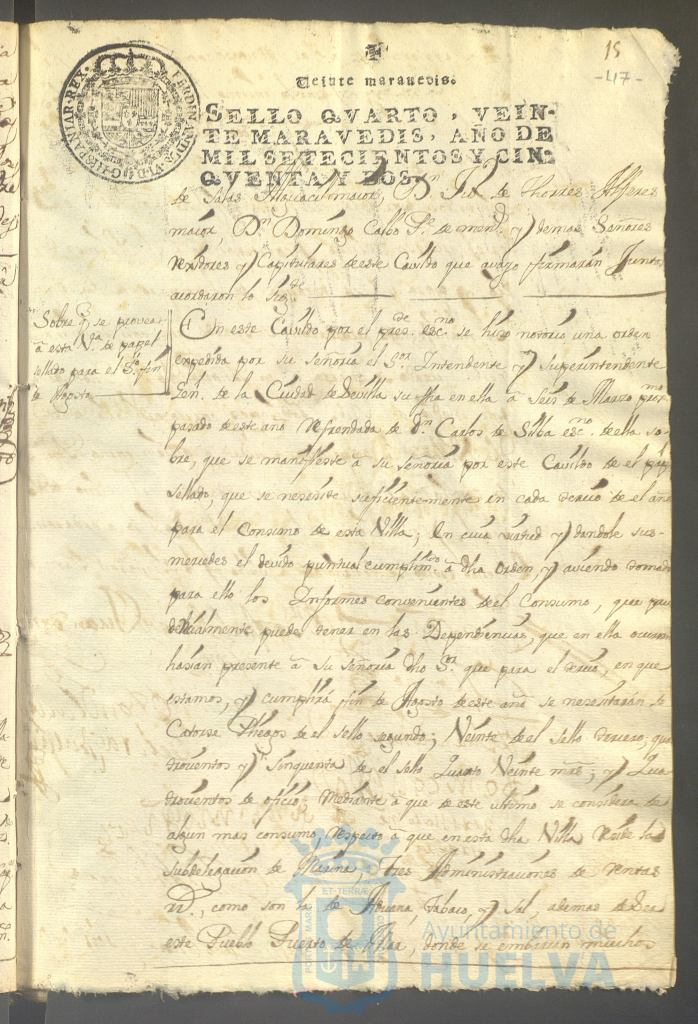 15
-47-
Veinte maravedis.
SELLO QVARTO, VEIN-
TE MARAVEDIS, AÑO DE
MIL SETECIENTOS Y CIN-
QVENTA Y DOS
FERDINANDVS VI D G HISPANIAR REX
de Salas Alguacil maior, Dn de thorres Alferes
maior, Dn Domingo Calbo Sr. de mend. y demas Señores
rexidores y Capitulares de este Cavildo que avajo firmarán Juntos
acordaron lo sigte
Sobre q. se provea
a esta Va. de papel
sellado para el fin
de Agosto
En este Cavildo por el presste. esc.no se hizo notorio una orden
expedida por su señoria el Sor. Intendente y superintendente
Gen. de la Ciudad de Sevilla su fha en ella â Seis de Marzo proxmo
pasado de este año Refrendada de Dn. Carlos de Silba esc.no de ella so-
bre, que se manifieste â su señoria por este Cavildo de el ppl
sellado, que se nesesite suficientemente en cada tercio de el año
para el Consumo de esta Villa; En cuia virtud y dandole sus
mercedes el devido puntual cumplim.to â dha orden, y aviendo tomado
para ello los Informes convenientes de el Consumo, que pru
dencialmente puede tener en las Dependencias, que en ella ocurran
hasian presente â su señoria dho Sor. que para el tercio, en que
estamos, y cumplirá fin de Agosto de este año se nesesitarán
Catorse Pliegos de el sello segundo; Veinte de el sello tersero, qua
trosientos y Sinquenta de el sello Quarto Veinte mrs; y Qua
trosientos de oficio; Mediante â que de este ultimo se considera
algun mas consumo, respecto â que en esta dha Villa reside la
subdelegacion de Marina, tres Administraciones de rentas
Rs., como son la de Aduana, tabaco, y Sal, ademas de Ser
este Pueblo Puerto de Mar, donde se embarcan muchos
PORTUS MARIS ET TERRÆ
Ayuntamiento de
HUELVA